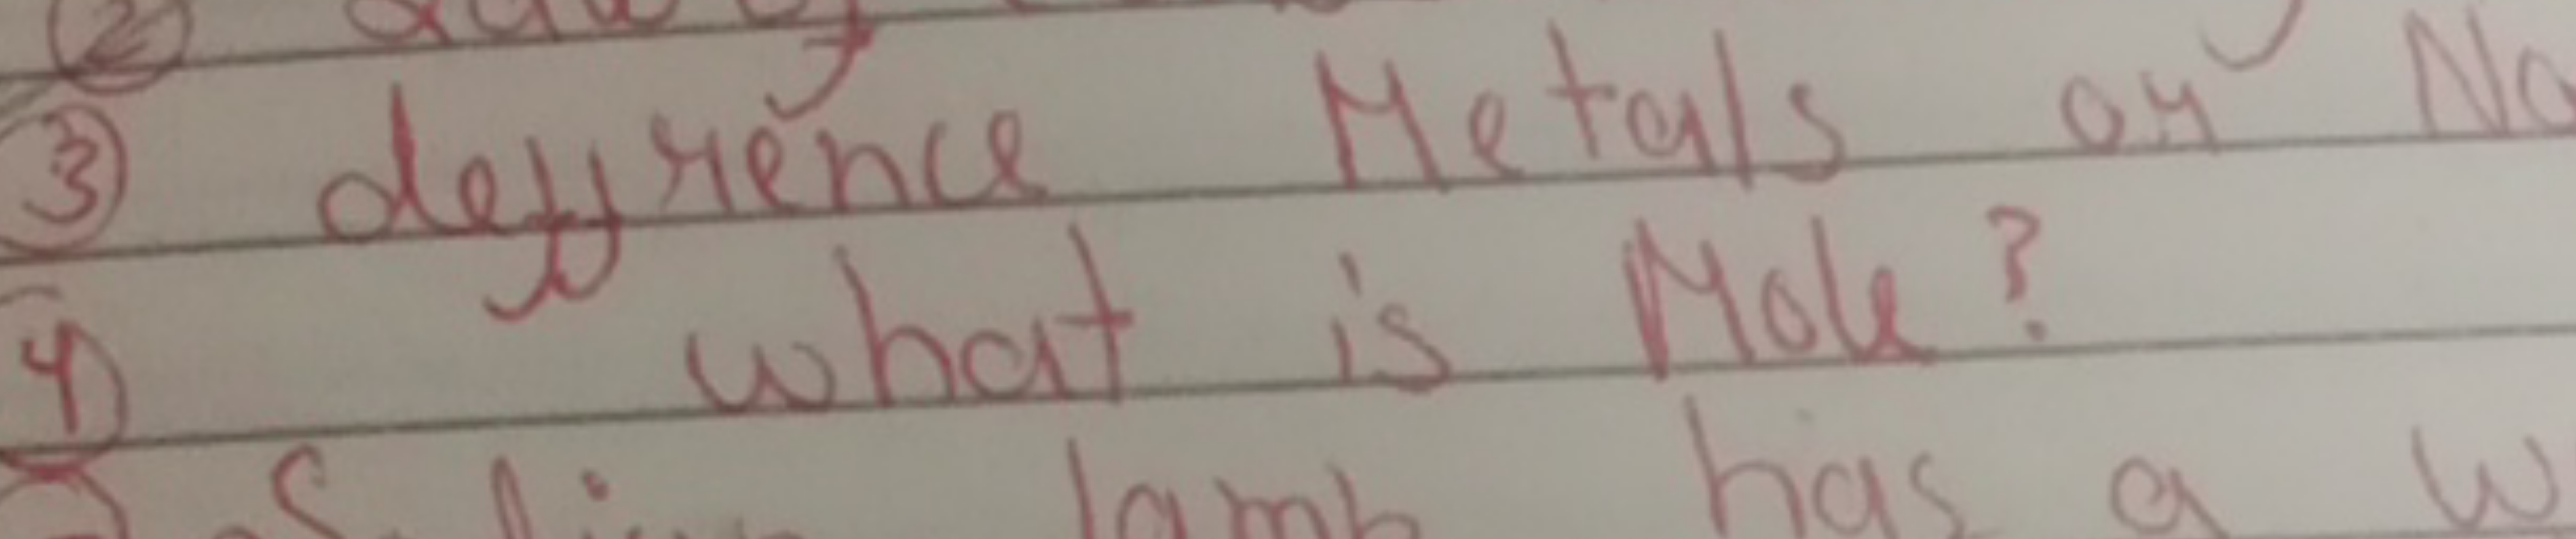 ② Law of
③ deffrence Metals or No
4) what is Mole?
lamp has a w